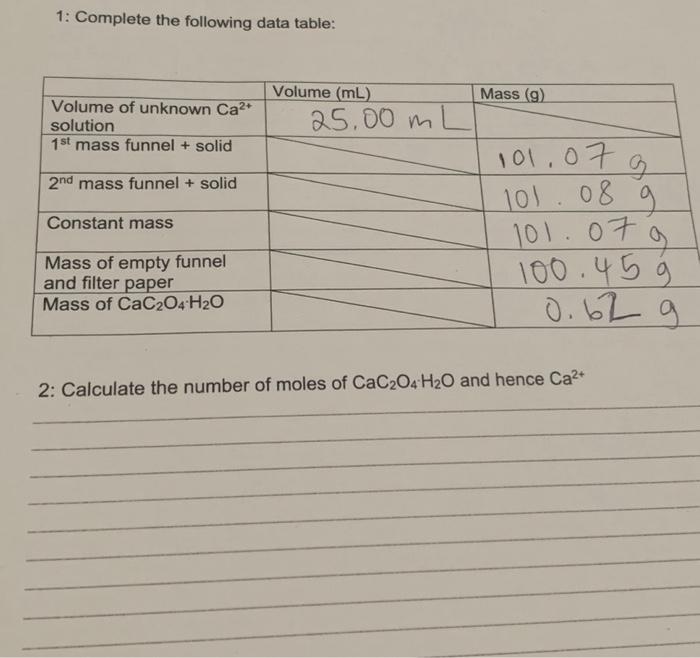 1: Complete the following data table:
Volume (mL) Mass (g)
Volume of unknown Ca²⁺
solution 25.00 mL
1st mass funnel + solid 101.07 g
2nd mass funnel + solid 101.08 g
Constant mass 101.07 g
Mass of empty funnel
and filter paper 100.45 g
Mass of CaC₂O₄·H₂O 0.62 g
2: Calculate the number of moles of CaC₂O₄·H₂O and hence Ca²⁺